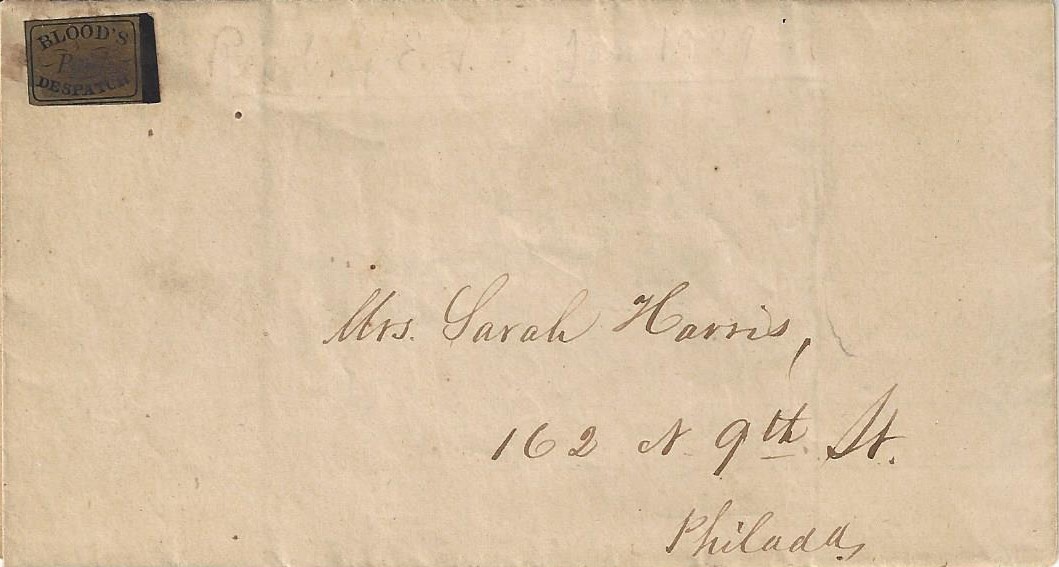 BLOOD'S
DESPATCH
Mrs. Sarah Harris,
162 N. 9th St.
Philada,